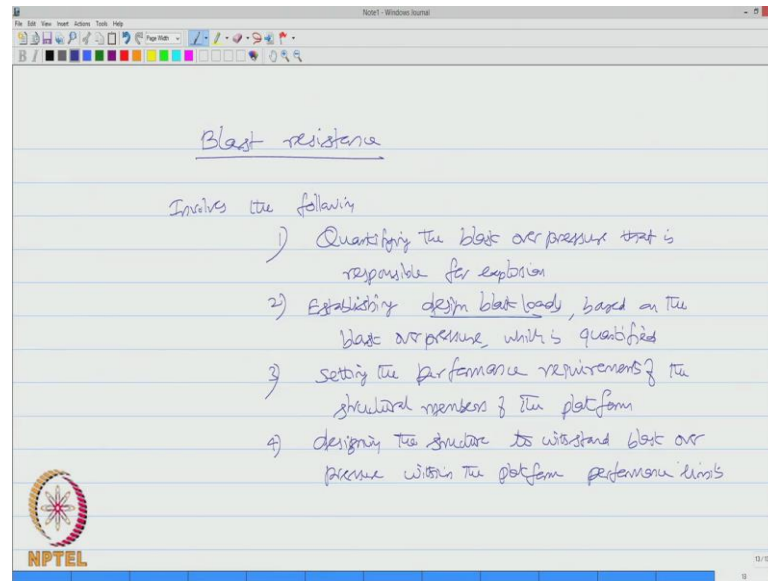 Note1 - Windows Journal
File Edit View Insert Actions Tools Help
Page Width
B I
Blast resistance
Involves the following
1) Quantifying the blast over pressure that is
responsible for explosion
2) Establishing design blast loads, based on the
blast over pressure, which is quantified
3) setting the performance requirements of the
structural members of the platform
4) designing the structure to withstand blast over
pressure within the platform performance limits
NPTEL